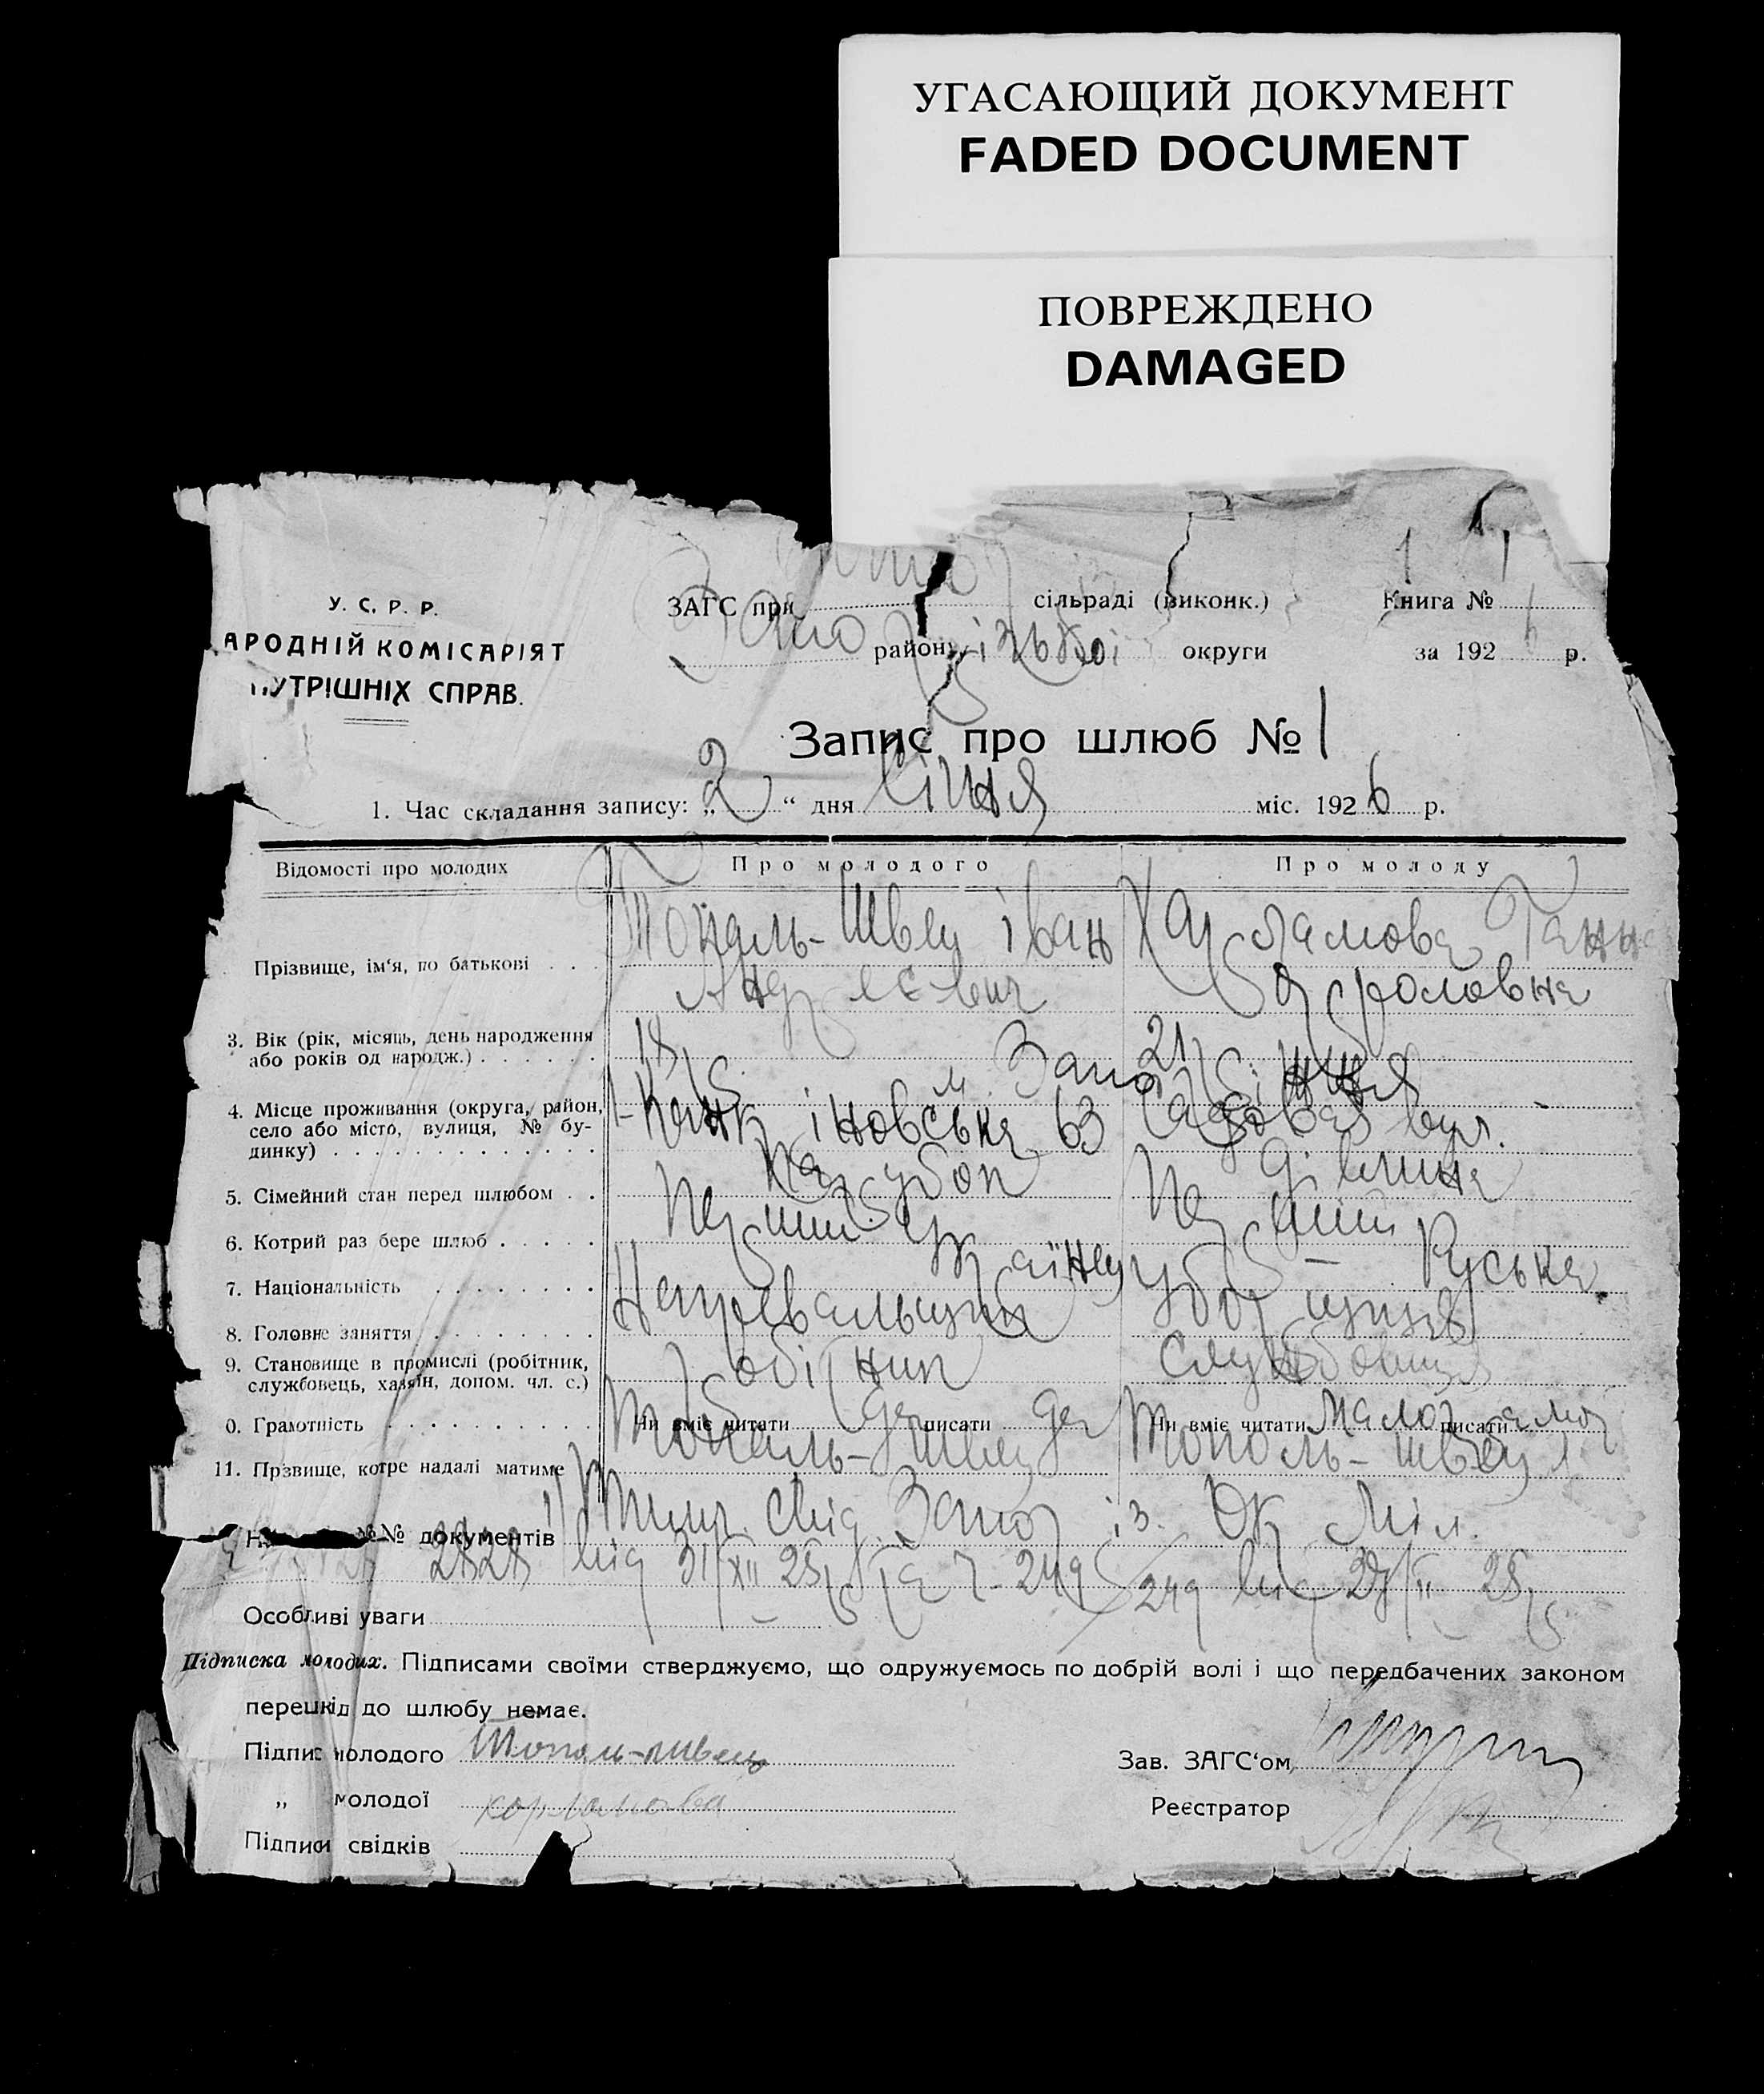 УГАСАЮЩИЙ ДОКУМЕНТ
FADED DOCUMENT
ПОВРЕЖДЕНО
DAMAGED
У. С. Р. Р.
АРОДНІЙ КОМІСАРІЯТ
НУТРІШНІХ СПРАВ.
ЗАГС при сільраді (виконк.) Книга №
району округи за 1926 р.
Запис про шлюб № 1
1. Час складання запису: „2“ дня Січня міс. 1926 р.
Відомості про молодих Про молодого Про молоду
Прізвище, ім‘я, по батькові . . . Тополь-Швец Іван Харламова Ганна
Андрієвич Фроловна
3. Вік (рік, місяць, день народження
або років од народж.) . . . . . . 18 р. 21 р.
м. Запоріжжя
4. Місце проживання (округа, район,
село або місто, вулиця, № бу-
динку) . . . . . . . . . . . . . 63 Садовая вул.
5. Сімейний стан перед шлюбом . . Парубок Дівчина
6. Котрий раз бере шлюб . . . . . Перший Перший
7. Національність . . . . . . . . Українец Руська
8. Головне заняття . . . . . . . . Нагревальщик Уборщиця
9. Становище в промислі (робітник,
службовець, хазяїн, допом. чл. с.) робітник Службовиця
0. Грамотність . . . . . . . . . . Чи вміє читати да писати да Чи вміє читати мало писати мало
11. Прізвище, котре надалі матиме Тополь-Швец Тополь-Швец
№№ документів
2828 від 31/XII 25 р. 249 від
Особливі уваги
Підписка молодих. Підписами своїми стверджуємо, що одружуємось по добрій волі і що передбачених законом
перешкід до шлюбу немає.
Підпис молодого Тополь-швець Зав. ЗАГС‘ом
„ молодої харламова Реєстратор
Підписи свідків